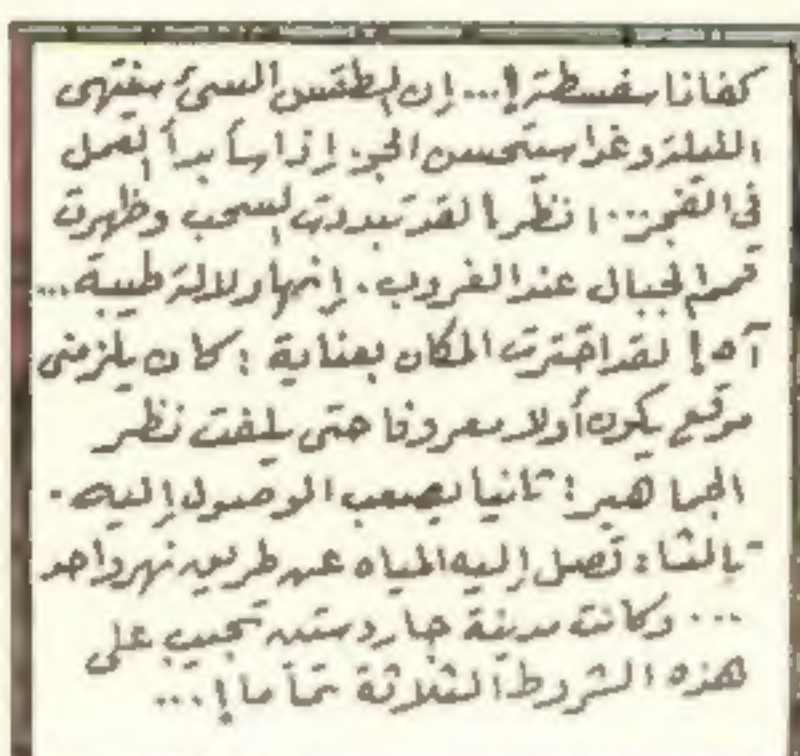 كفانا سفسطة !... إن الطقس السئ سينتهى
الليلة وغدا سيتحسن الجو. إذا سأبدأ العمل
فى الفجر... انظر ! لقد تبددت السحب وظهرت
قمم الجبال عند الغروب. إنها دلالة طيبة...
آه ! لقد اخترت المكان بعناية : كان يلزمنى
موقع يكون أولا معروفا حتى يلفت نظر
الجماهير ! ثانيا يصعب الوصول إليه.
ثالثا : تصل إليه المياه عن طريق نهر واحد
... وكانت مدينة جاردستن تجيب على
هذه الشروط الثلاثة تماما !...